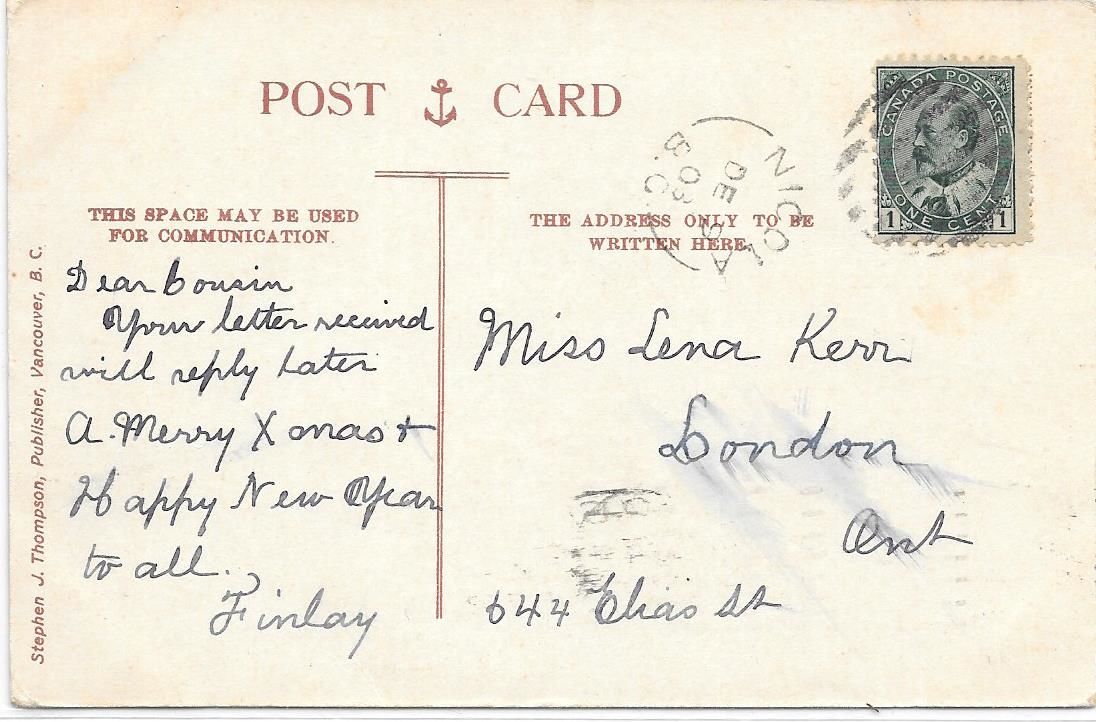 POST CARD
CANADA POSTAGE
1 ONE CENT 1
NICOLA
DE
08
B.C
THIS SPACE MAY BE USED
FOR COMMUNICATION.
THE ADDRESS ONLY TO BE
WRITTEN HERE.
Dear Cousin
Your letter received
will reply later
A. Merry Xmas +
Happy New Year
to all.
Finlay
Miss Lena Kerr
London
Ont
644 Elias St
Stephen J. Thompson, Publisher, Vancouver, B. C.